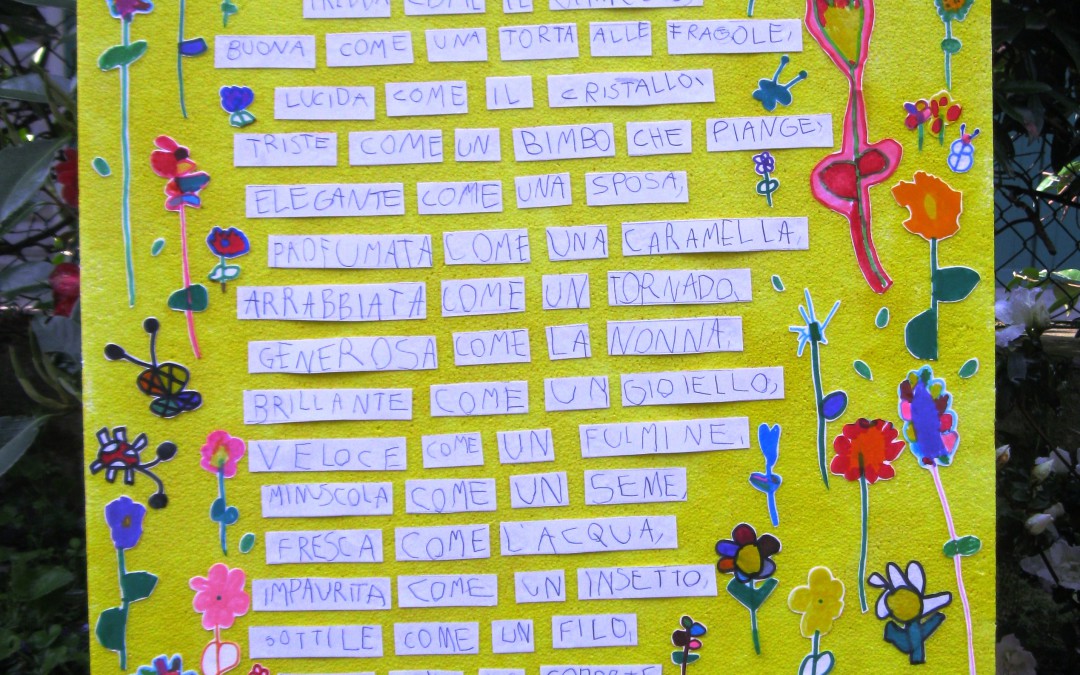 COME IL
BUONA COME UNA TORTA ALLE FRAGOLE,
LUCIDA COME IL CRISTALLO,
TRISTE COME UN BIMBO CHE PIANGE,
ELEGANTE COME UNA SPOSA,
PROFUMATA COME UNA CARAMELLA,
ARRABBIATA COME UN TORNADO,
GENEROSA COME LA NONNA,
BRILLANTE COME UN GIOIELLO,
VELOCE COME UN FULMINE,
MINUSCOLA COME UN SEME,
FRESCA COME L'ACQUA,
IMPAURITA COME UN INSETTO,
SOTTILE COME UN FILO,